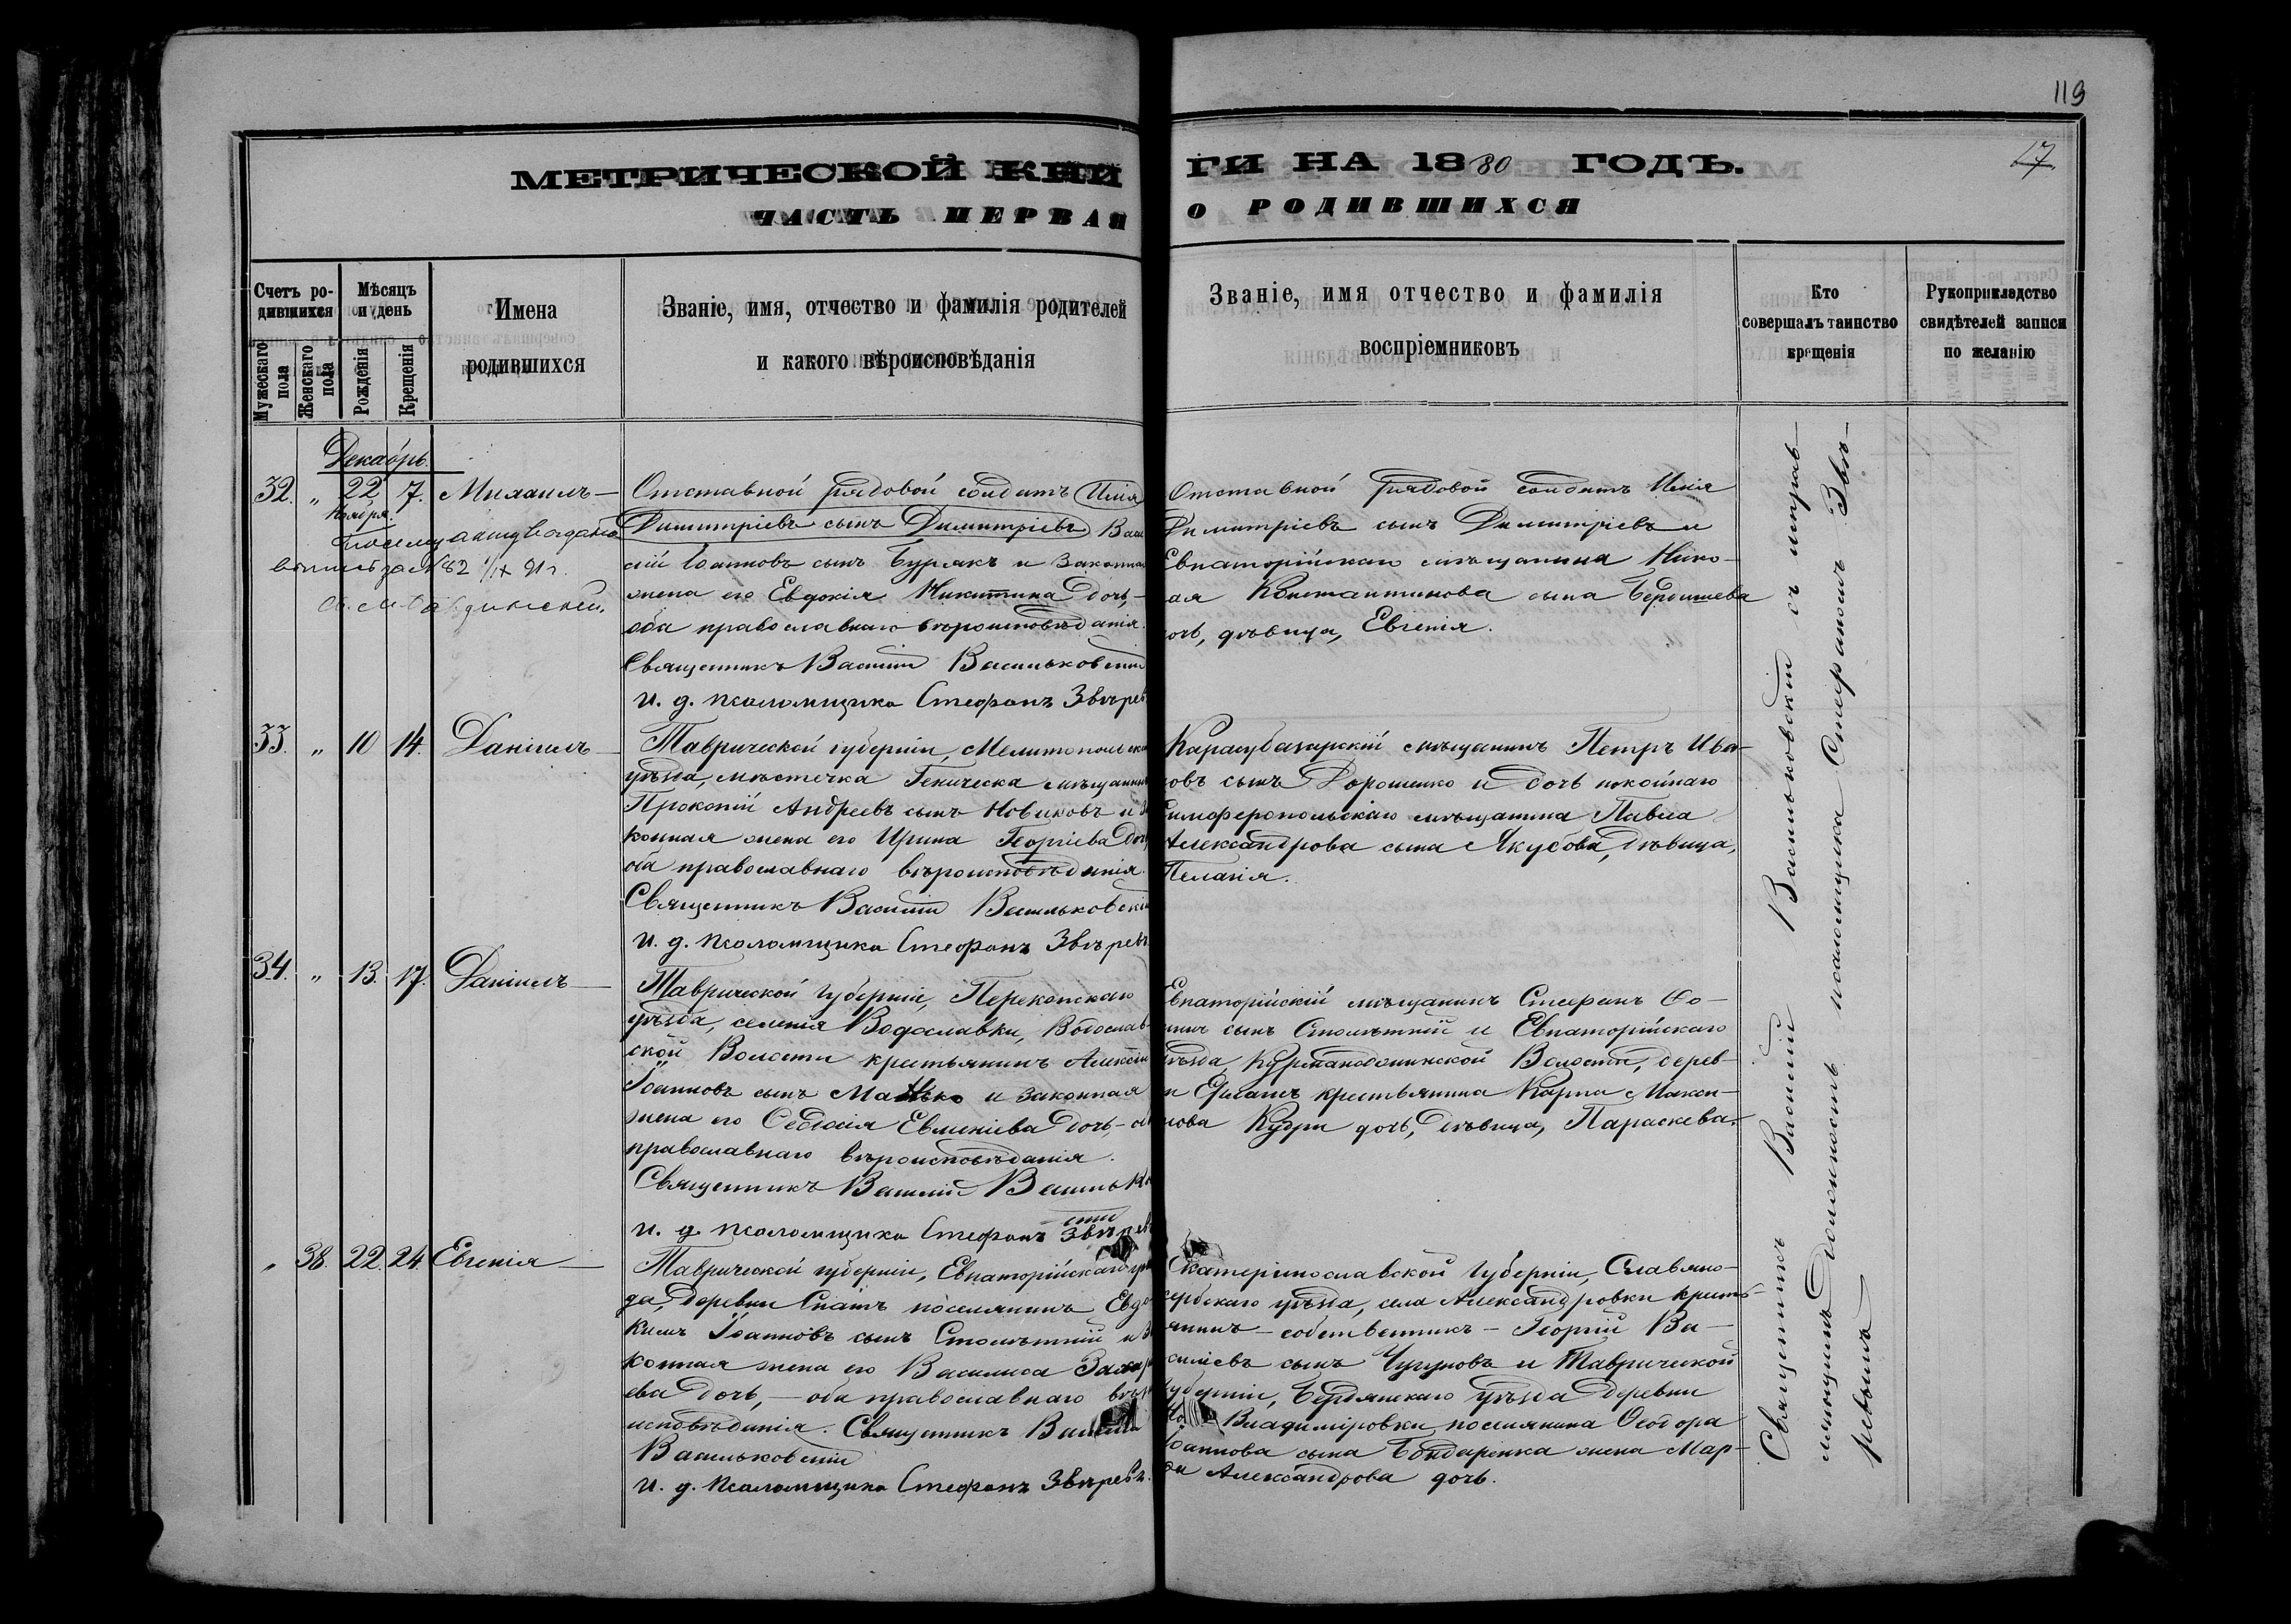 119
17
МЕТРИЧЕСКОЙ КНИ
ГИ НА 1880 ГОДЪ.
ЧАСТЬ ПЕРВАЯ
О РОДИВШИХСЯ
Счетъ ро-
дившихся
Мѣсяцъ
и день
Мужескаго
пола
Женскаго
пола
Рожденія
Крещенія
Имена
родившихся
Званіе, имя, отчество и фамилія родителей
и какого вѣроисповѣданія
Званіе, имя отчество и фамилія
воспріемниковъ
Кто
совершалъ таинство
крещенія
Рукоприкладство
свидѣтелей записи
по желанію
Декабрь
32. " 22 7. Михаилъ
Ноября
Отставной рядовой солдатъ Илія
Димитріевъ сынъ Димитріевъ Васи
сій Іоанновъ сынъ Бурлакъ и законная
жена его Евдокія Никитина дочь, –
оба православнаго вѣроисповѣданія.
Священникъ Василій Васильковскій
и. д. псаломщика Стефанъ Звѣрев
Отставной рядовой солдатъ Илія
Димитріевъ сынъ Димитріевъ и
Евпаторійскаго мѣщанина Нико-
ая Константинова сына Бердишева
очь, дѣвица, Евгенія.
33. " 10 14. Даніилъ
Таврической губерніи, Мелитопольска
уѣзда, мѣстечка Геническа мѣщанин
Прокопій Андреевъ сынъ Новиковъ и за
конная жена его Ирина Георгіева дочь
оба православнаго вѣроисповѣданія.
Священникъ Василій Васильковскій
и. д. псаломщика Стефанъ Звѣревъ
Карасубазарскій мѣщанинъ Петръ Ива-
новъ сынъ Дорошенко и дочь покойнаго
Симферопольскаго мѣщанина Павла
Александрова сына Якубова, дѣвица,
Пелагія.
34. " 13. 17. Даніилъ
Таврической губерніи, Перекопскаго
уѣзда, селенія Водославки, Водослав
ской Волости крестьянинъ Алексій
Іоанновъ сынъ Манько и законная
жена его Ѳеодосія Евменіева дочь, – об
православнаго вѣроисповѣданія.
Священникъ Василій Васильк
скій
и. д. псаломщика Стефанъ Звѣревъ
Евпаторійскій мѣщанинъ Стефанъ Ѳо-
минъ сынъ Столѣтній и Евпаторійскаго
уѣзда, Курманаджинской Волости, дерев-
и крестьянина Карпа Макси-
мова Кудри дочь, дѣвица, Параскева.
" 38. 22. 24. Евгенія
Таврической губерніи, Евпаторійскаго уѣз
да, деревни Спатъ поселянинъ Евдо
кимъ Іоанновъ сынъ Столѣтній и за
конная жена его Василиса Захарі
ева дочь, – оба православнаго вѣро
исповѣданія. Священникъ Василій
Васильковскій
и. д. псаломщика Стефанъ Звѣревъ.
Екатеринославской губерніи, Славяно-
сербскаго уѣзда, села Александровки кресть-
янинъ – собственникъ – Георгій Ва-
силіевъ сынъ Чугуновъ и Таврической
губерніи, Бердянскаго уѣзда деревни
Ново Владиміровки поселянина Ѳеодора
Іоаннова сына Бондаренка жена Мар-
ѳа Александрова дочь.
Священникъ Василій Васильковскій съ исправ-
ляющимъ должность псаломщика Стефаномъ Звѣ-
ревымъ